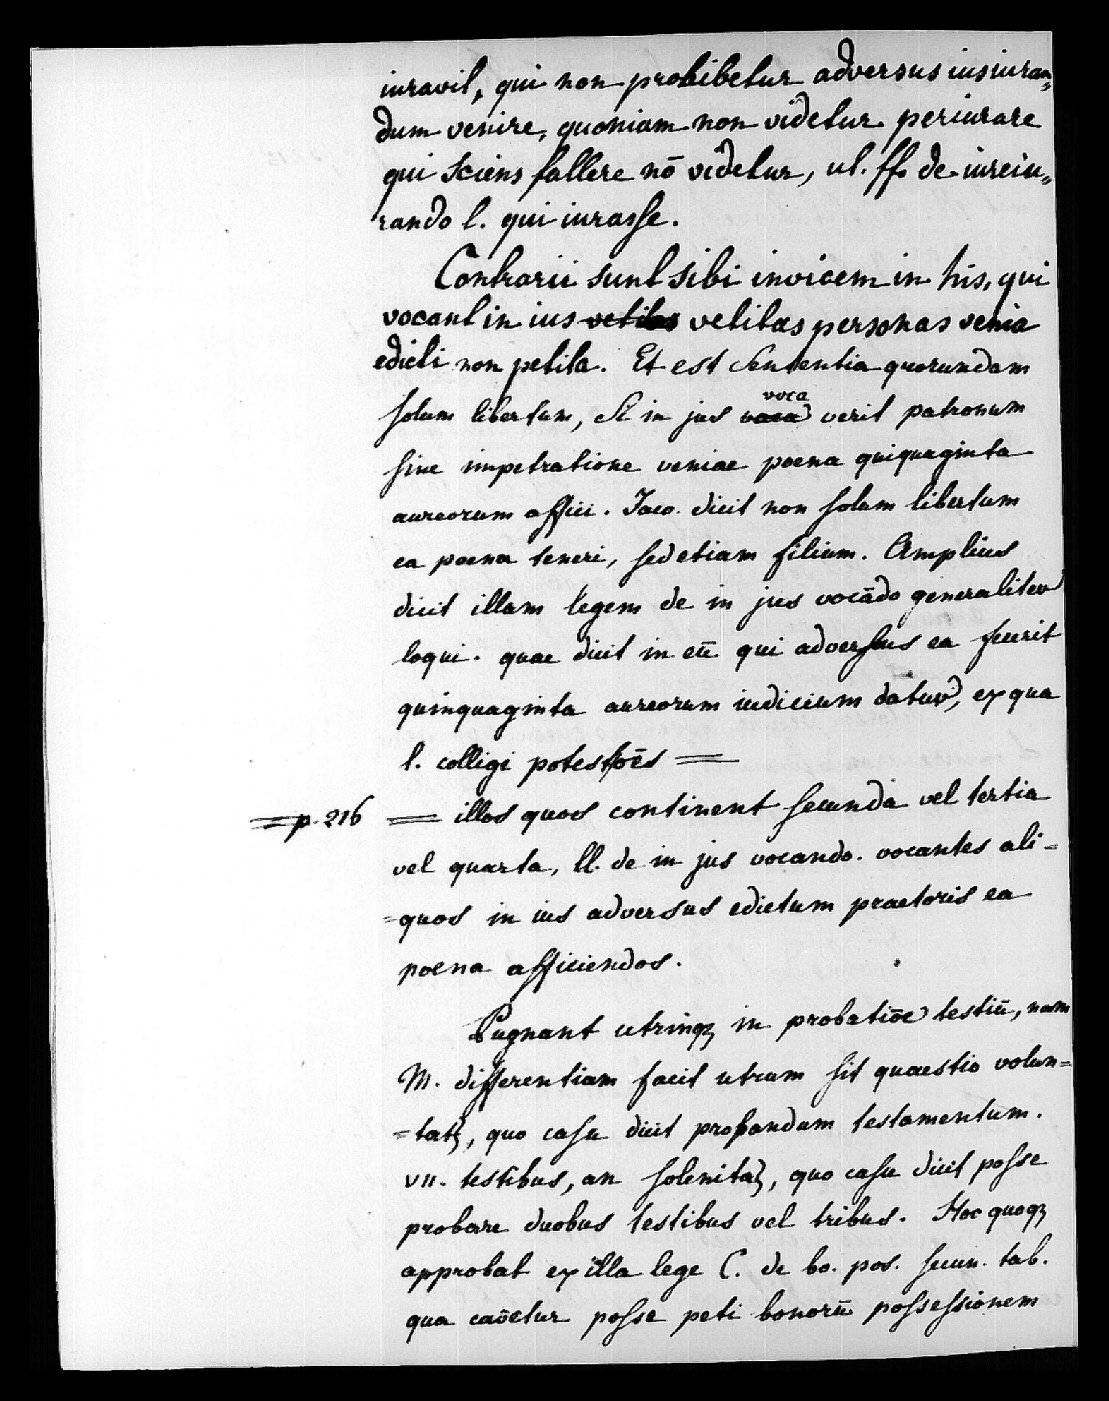 iuravit, qui non prohibetur adversus iusiuran„
dum venire, quoniam non videtur periurare
qui sciens fallere nō videtur, ut. ff. de iureiu„
rando l. qui iurasse.
Contrarii sunt sibi invicem in his, qui
vocant in ius vetitas vetitas personas venia
edicti non petita. Et est sententia quorundam
solum libertum, si in jus voca voca verit patronum
sine impetratione veniae poena quiquaginta
aureorum affici. Jaco. dicit non solum libertum
ea poena teneri, sed etiam filium. Amplius
dicit illam legem de in jus vocādo generaliter
loqui. quae dicit in eū qui adversus ea fecerit
quinquaginta aureorum iudicium datur, ex qua
l. colligi potest oēs =
=p. 216 = illos quos continent secunda vel tertia
vel quarta, ll. de in jus vocando. vocantes ali=
=quos in ius adversus edictum praetoris ea
poena afficiendos.
Pugnant utrinqꝫ in probatiōe testiū, nam
M. differentiam facit utrum sit quaestio volun=
=tatꝫ, quo casu dicit probandum testamentum.
VII. testibus, an solenitaꝫ, quo casu dicit posse
probare duobus testibus vel tribus. Hoc quoqꝫ
approbat ex illa lege C. de bo. pos. secun. tab.
qua cavētur posse peti bonorū possessionem